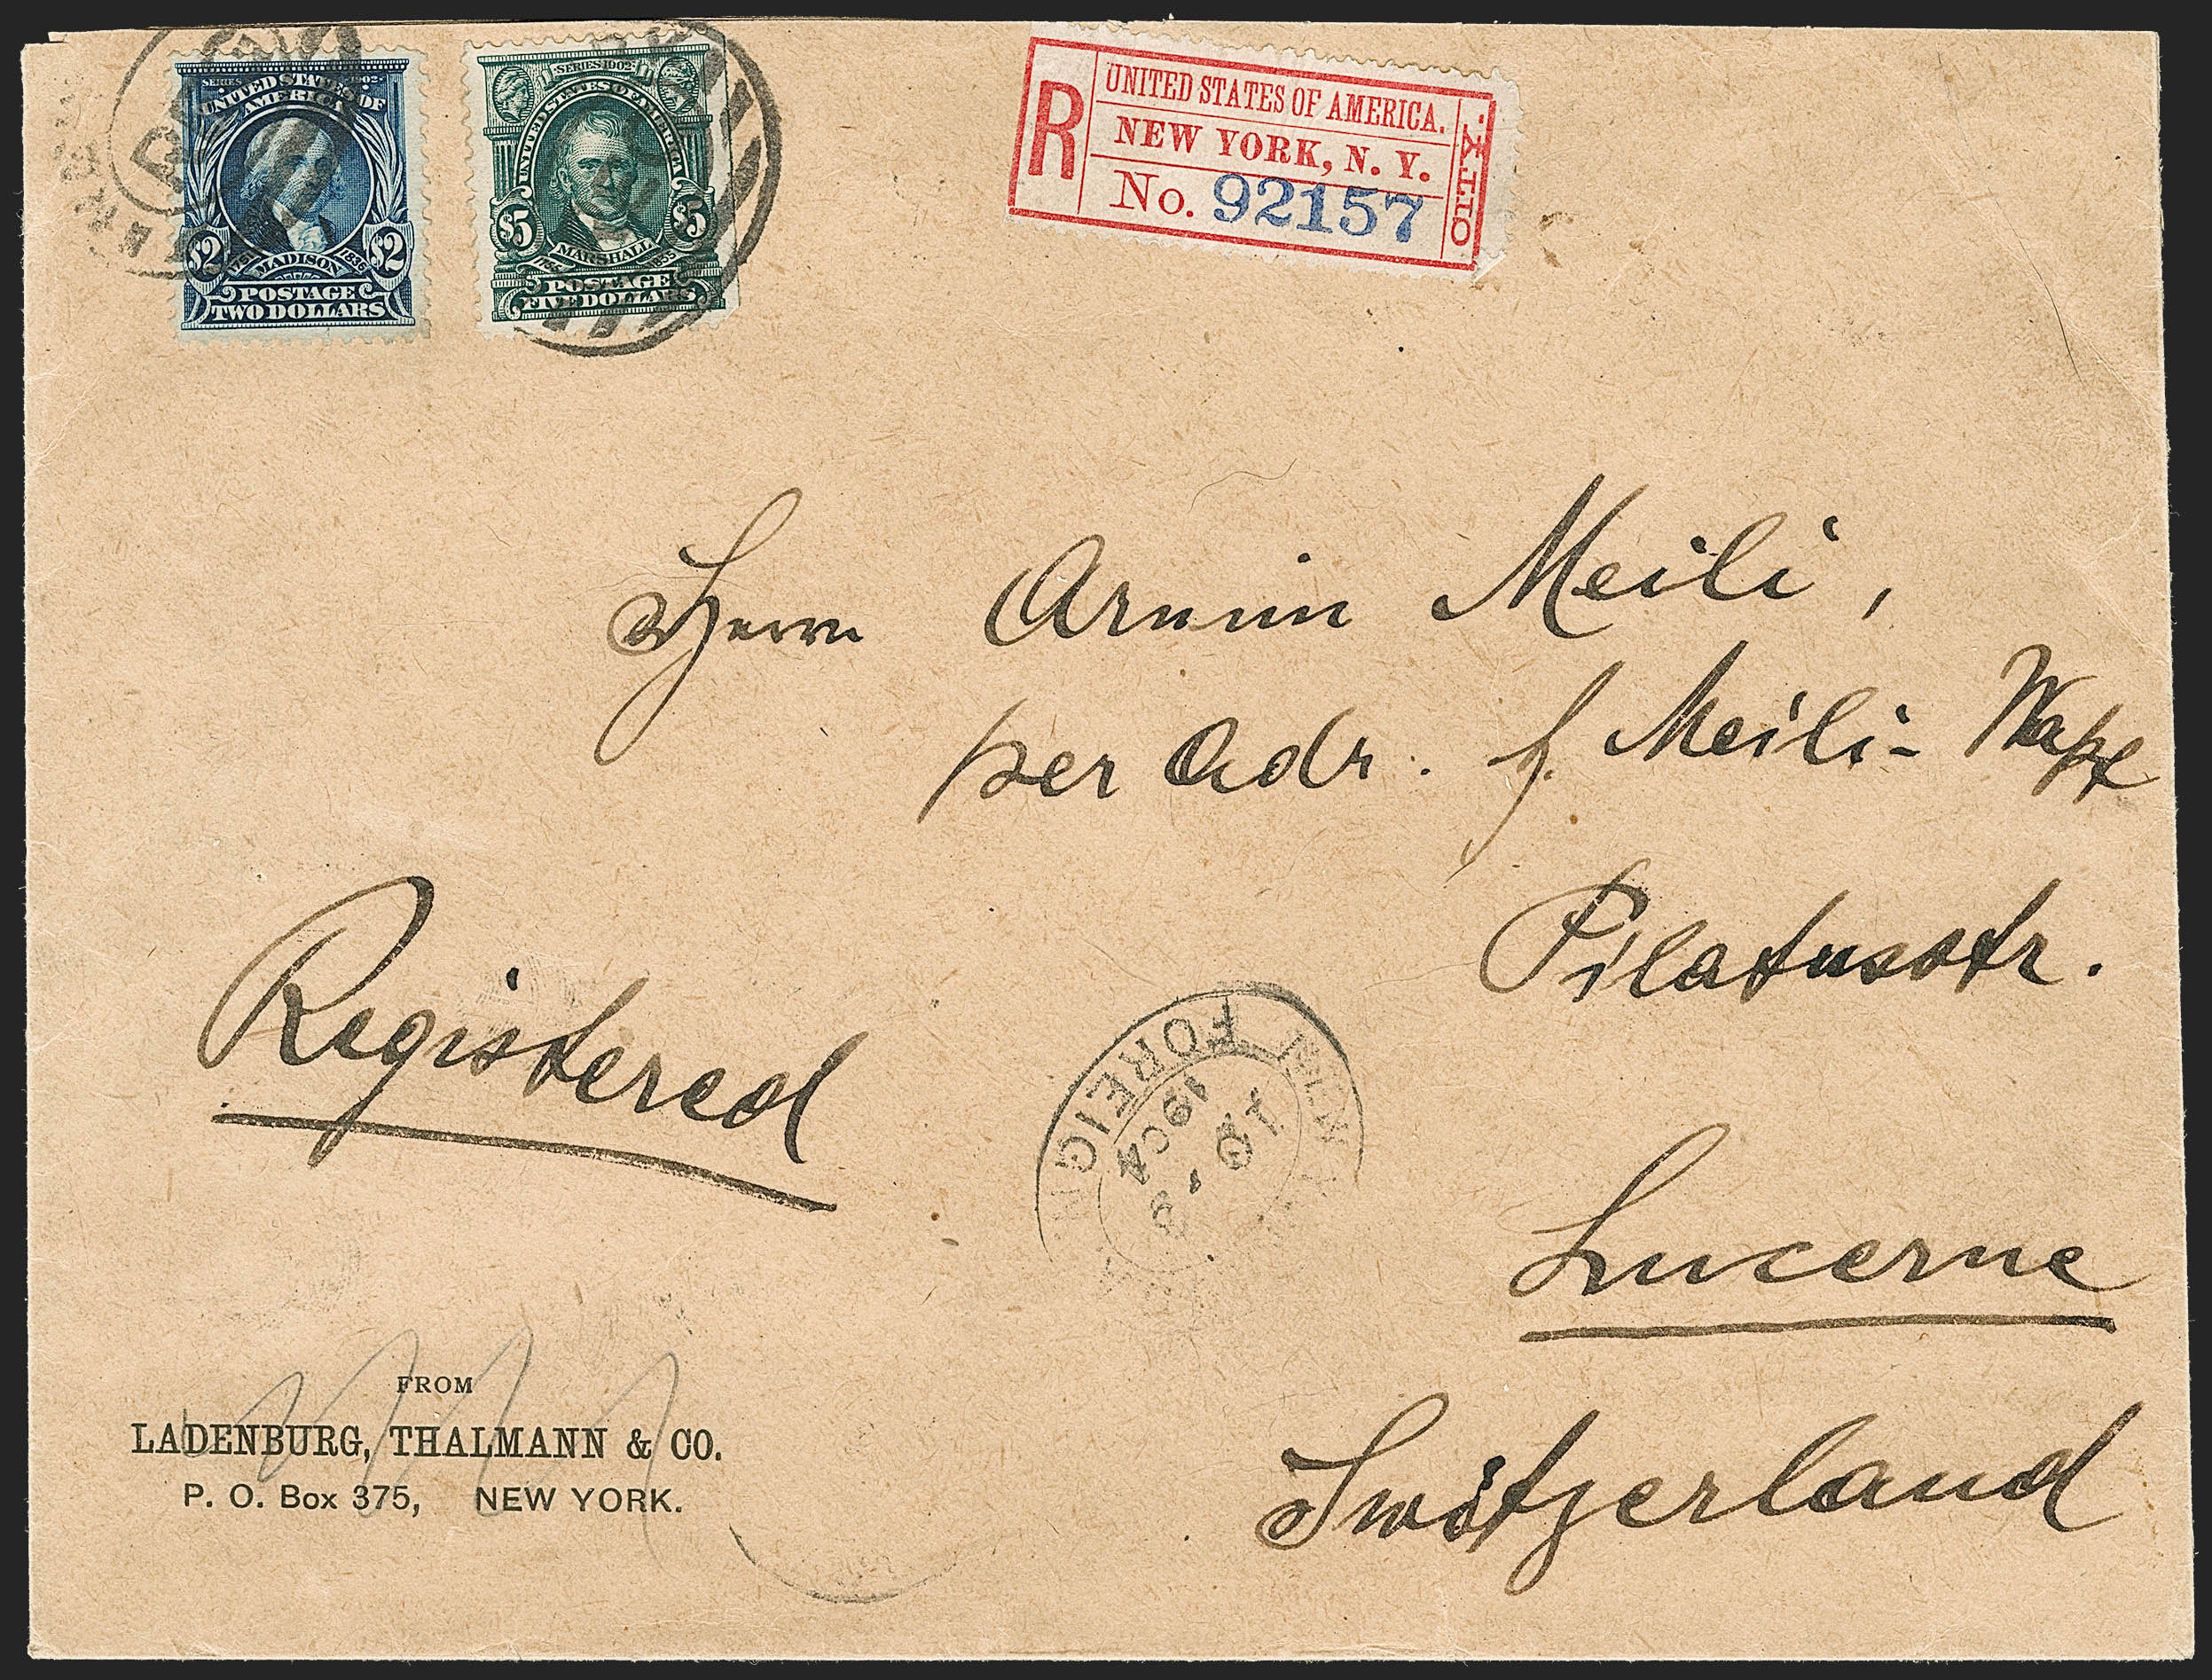 SERIES 1902
UNITED STATES OF
AMERICA
$2 $2
1751 MADISON 1836
POSTAGE
TWO DOLLARS
SERIES 1902
UNITED STATES OF AMERICA
$5 $5
MARSHALL
1755 1835
POSTAGE
FIVE DOLLARS
R
UNITED STATES OF AMERICA.
NEW YORK, N. Y.
No. 92157
CITY.
Herrn Armin Meili,
per Adr. f. Meili-
Pilatusstr.
Lucerne
Switzerland
Registered
FOREIGN
FROM
LADENBURG, THALMANN & CO.
P. O. Box 375, NEW YORK.